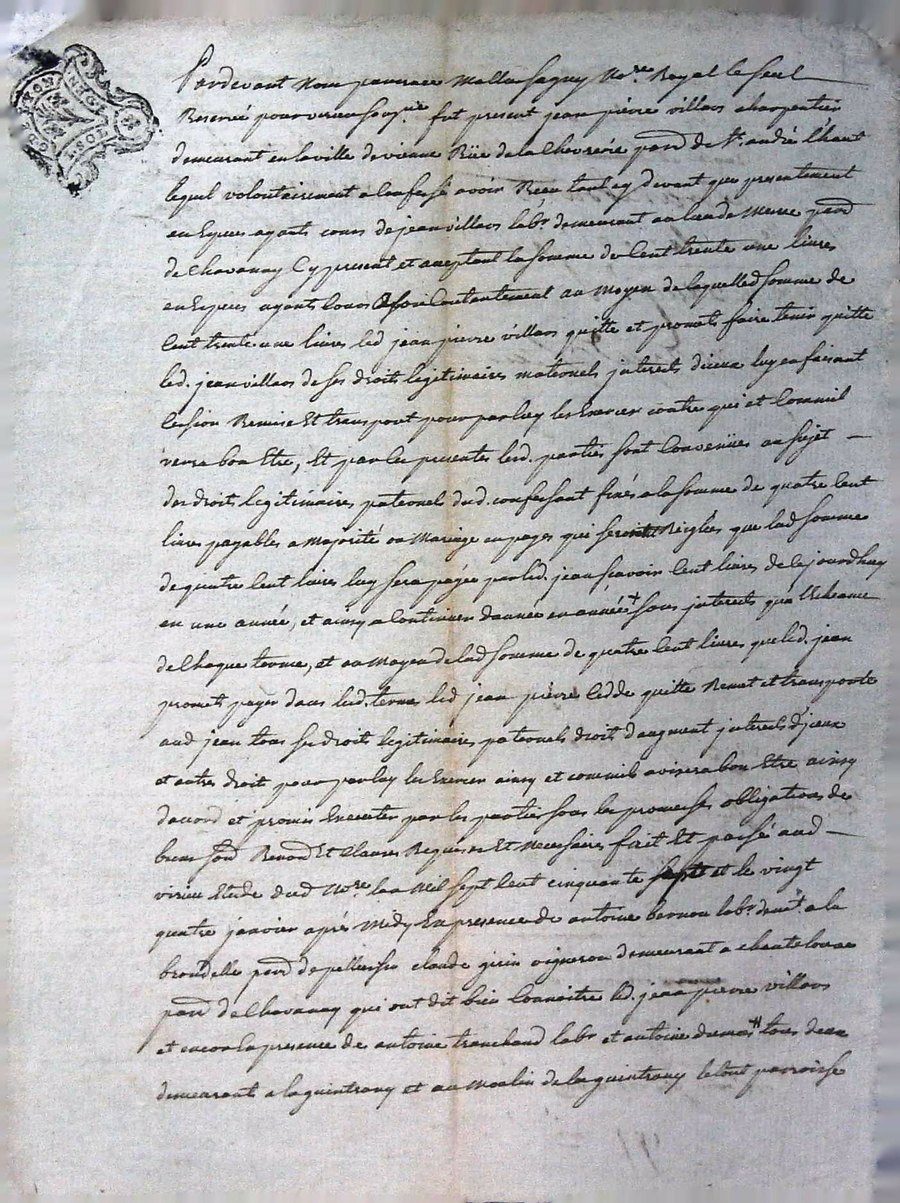 Pardevant Nous pancrace Mallassagny No.re Royal le seul
Reservé pour virieu sous.né fut present jean pierre villars charpentier
demeurant en la ville de vienne Rüe de la Chevrerie parr. de St. andré le haut
lequel volontairement a confessé avoir Reçu tant cy devant que presentement
en Especes ayants cours de jean villars labr. demeurant au lieu de Merre parr
de Chavanay Cy present et aceptant la somme de Cent trente une livres
en Especes ayants Cours Contantement au Moyen de laquelled somme de
Cent trente une livres led jean pierre villars quitte et promet faire tenir quitte
led. jean villars de ses droits legitimaires maternels jnterets diceux luy en faisant
Cession Remise Et transport pour par luy les Exercer contre qui et Comme il
verra bon Etre, Et par les presentes lesd. parties sont Convenües au sujet
des droits legitimaires paternel dud. confessant fixés a la somme de quatre Cent
livres payables a Majorité ou Mariage en pages qui seront Reiglées que lad somme
de quatre Cent livres luy sera payée par led. jean scavoir Cent livres de ce jourdhuy
en une année, et ainsy a Continuer dannée en année sans jnterets qu'a l'Echeance
de Chaque terme, et au Moyen de lad somme de quatre Cent livres que led. jean
promet payer dans led. terme led jean pierre Cedde quitte Remet et transporte
aud jean tous ses droits legitimaires paternels droit d'augment jnterets d'jceux
et autre droit pour par luy les Exercer ainsy et comme il avisera bon Etre ainsy
dacord et promis Executer par les parties sous les promesses obligations de
biens Renond Et Clauses Requises Et Necessaires fait Et passé aud
virieu Etude dud No.re lan Mil sept Cent cinquante sept et le vingt
quatre janvier aprés Midy En presence de antoine bernou labr. demt. a la
brondelle parr de pellussin claude girin vigneron demeurant a chantelouve
parr de Chavanay qui ont dit bien Connoitre led. jean pierre villars
et encor En presence de antoine tranchand labr et antoine dumas tous deux
demeurant a la guintrany et au Moulin de la guintrany le tout parroisse